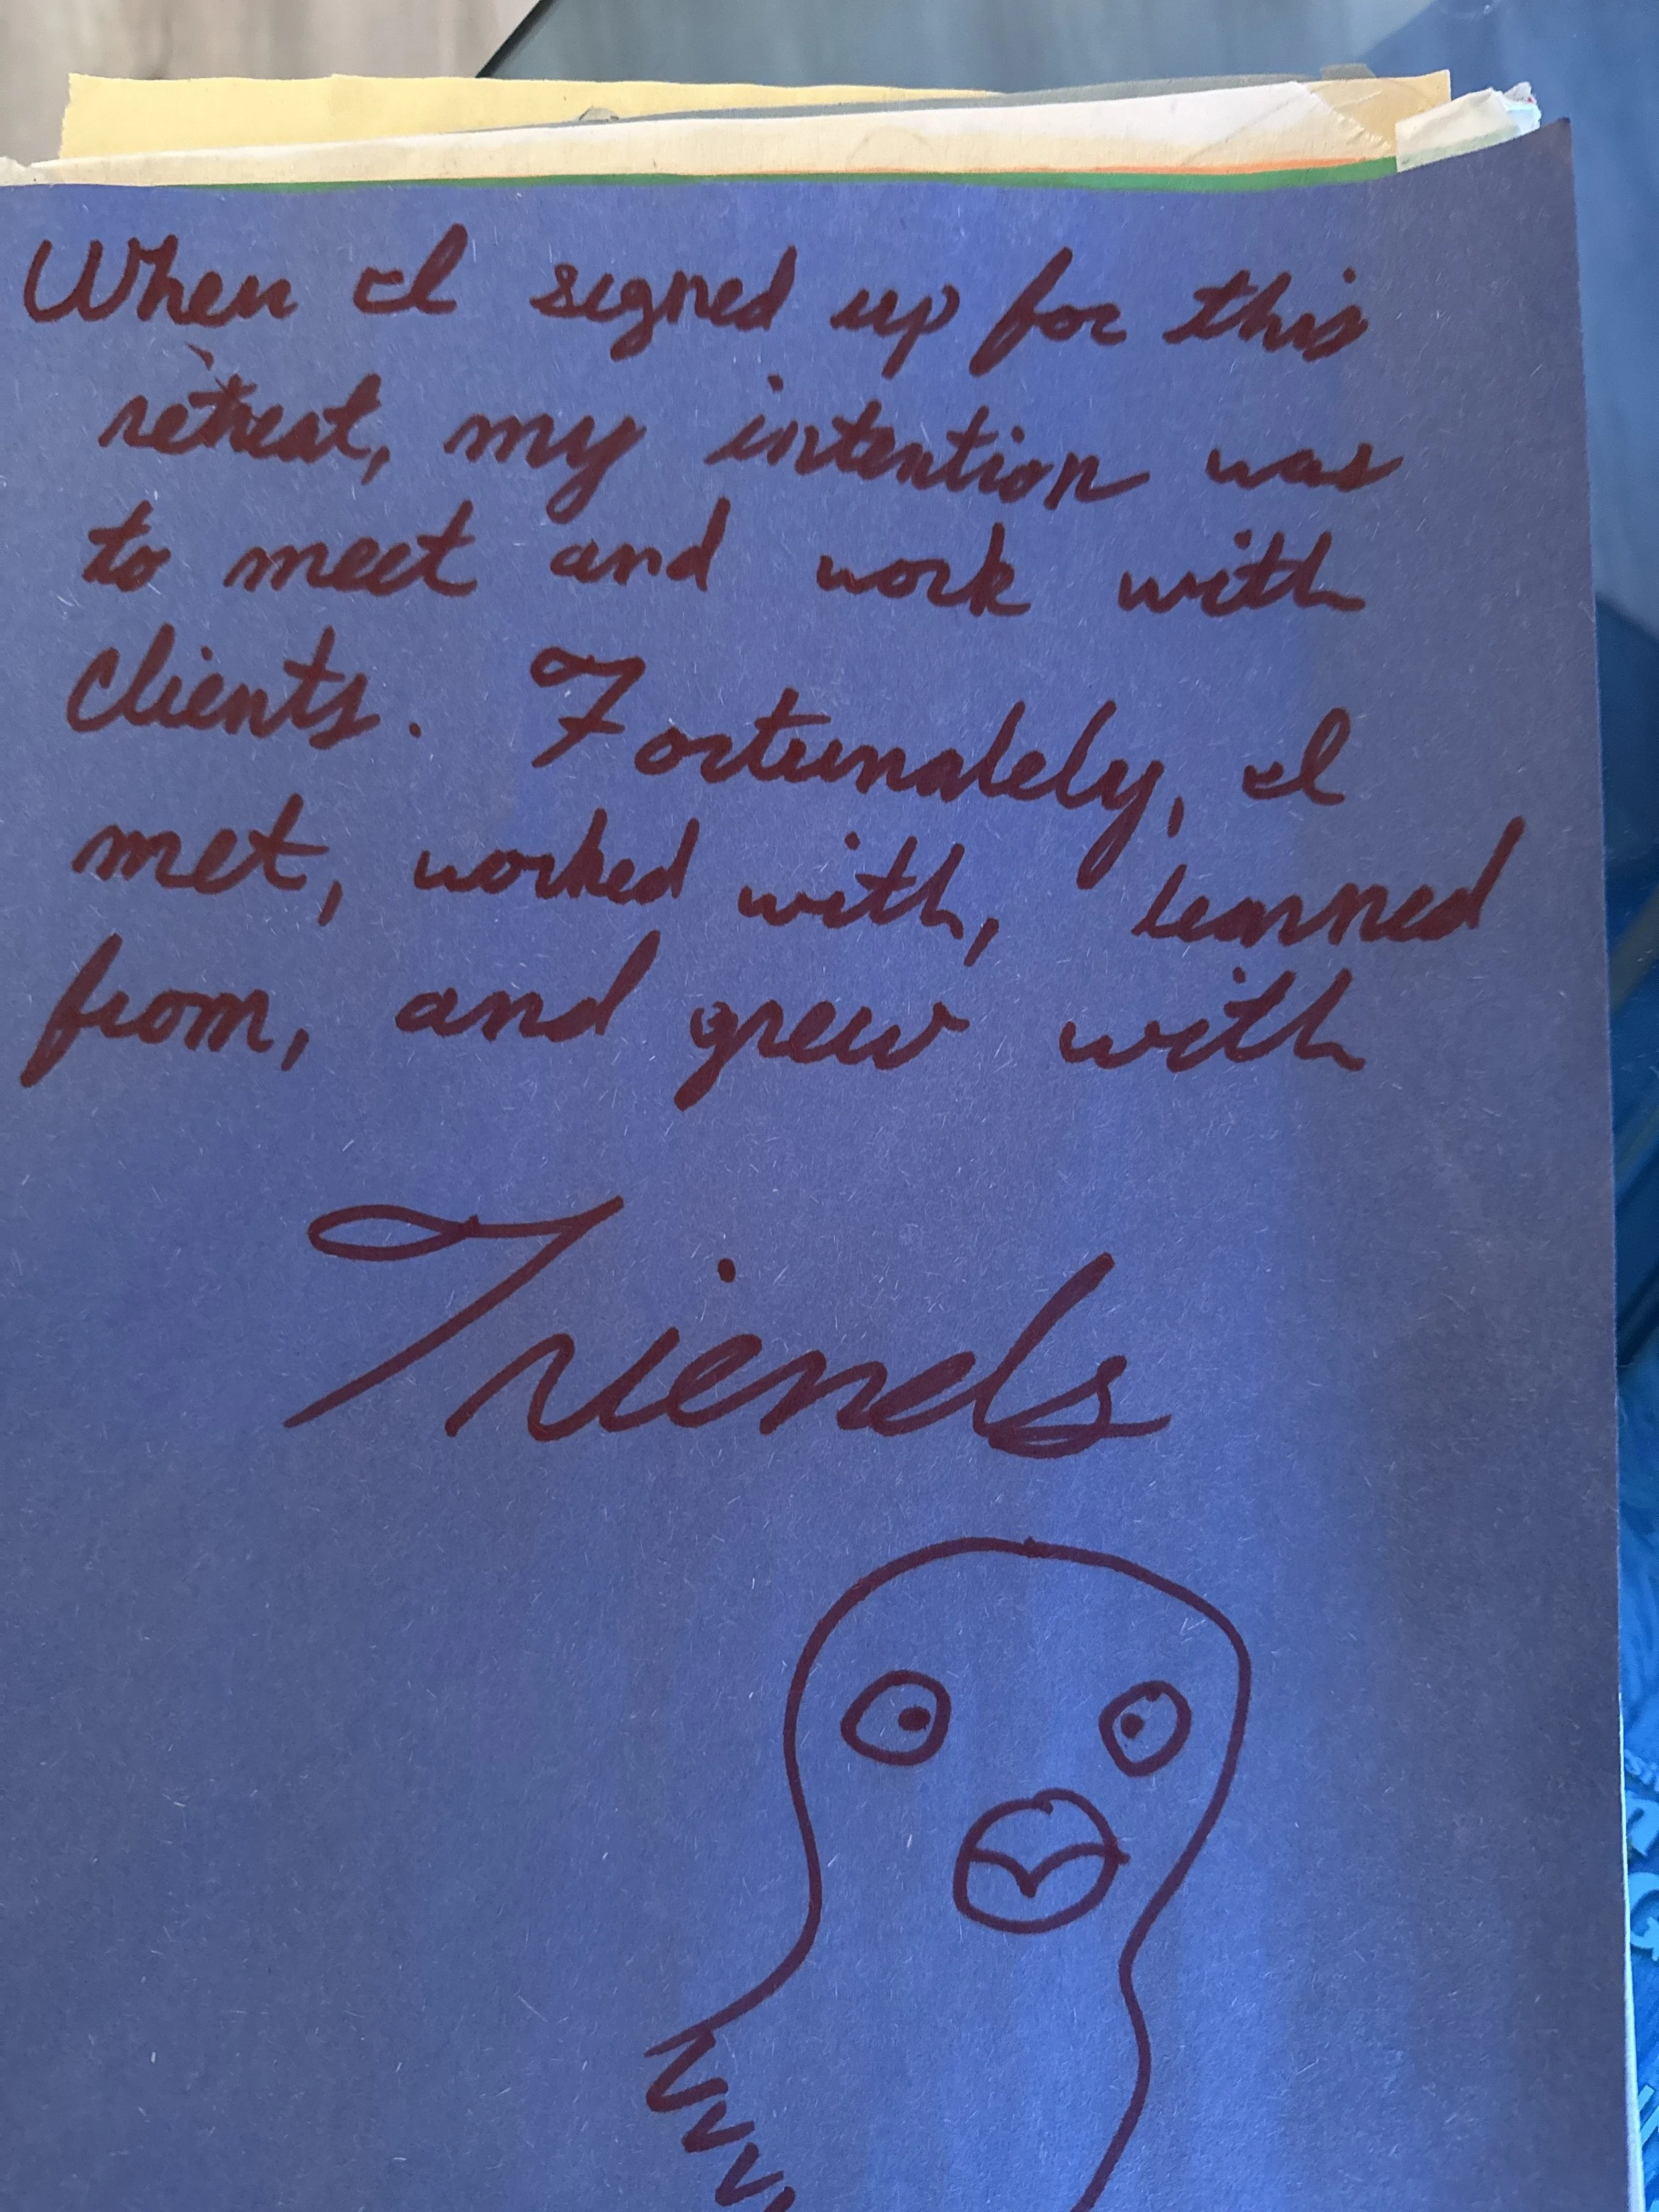 When I signed up for this
retreat, my intention was
to meet and work with
clients. Fortunately, I
met, worked with, learned
from, and grew with
Friends